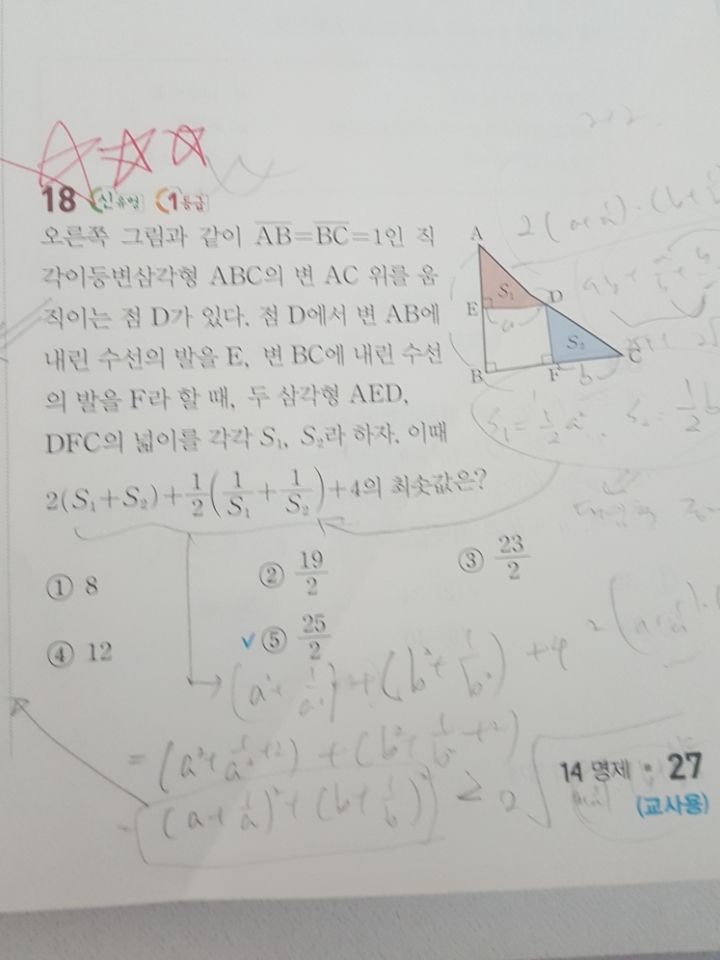 18 신유형 1등급
오른쪽 그림과 같이 AB=BC=1인 직
각이등변삼각형 ABC의 변 AC 위를 움
직이는 점 D가 있다. 점 D에서 변 AB에
내린 수선의 발을 E, 변 BC에 내린 수선
의 발을 F라 할 때, 두 삼각형 AED,
DFC의 넓이를 각각 S₁, S₂라 하자. 이때
2(S₁+S₂)+1/2(1/S₁+1/S₂)+4의 최솟값은?
A
S₁ D
E a
S₂
B F b C
S₁=1/2a²
① 8 ② 19/2 ③ 23/2
④ 12 ✓⑤ 25/2
(a²+1/a²)+(b²+1/b²)+4
=(a²+1/a²+2)+(b²+1/b²+2)
(a+1/a)²+(b+1/b)² ≥ 2√
14 명제 • 27
(교사용)